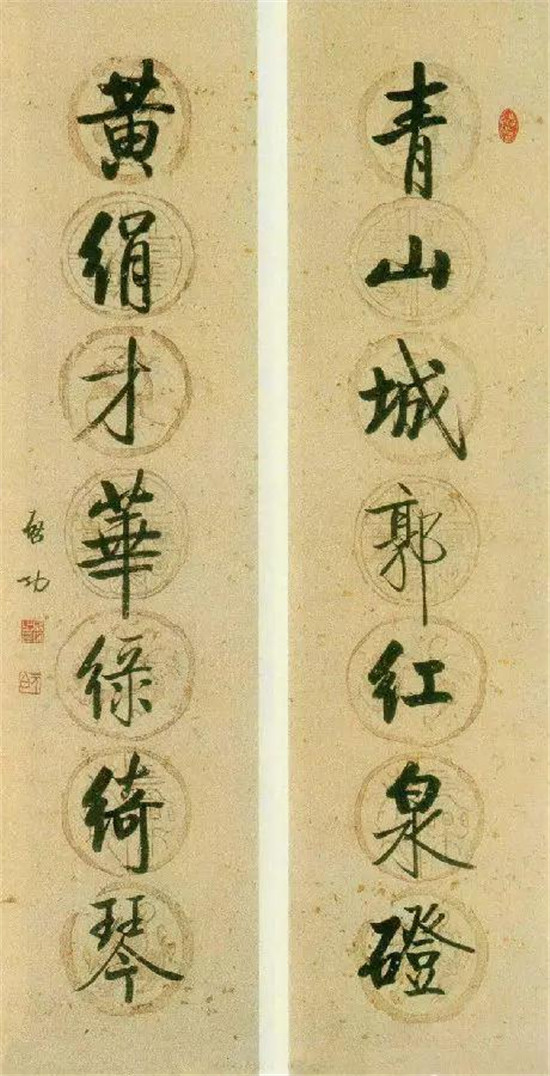 青山城郭红泉磴
黃絹才華綠綺琴
启功